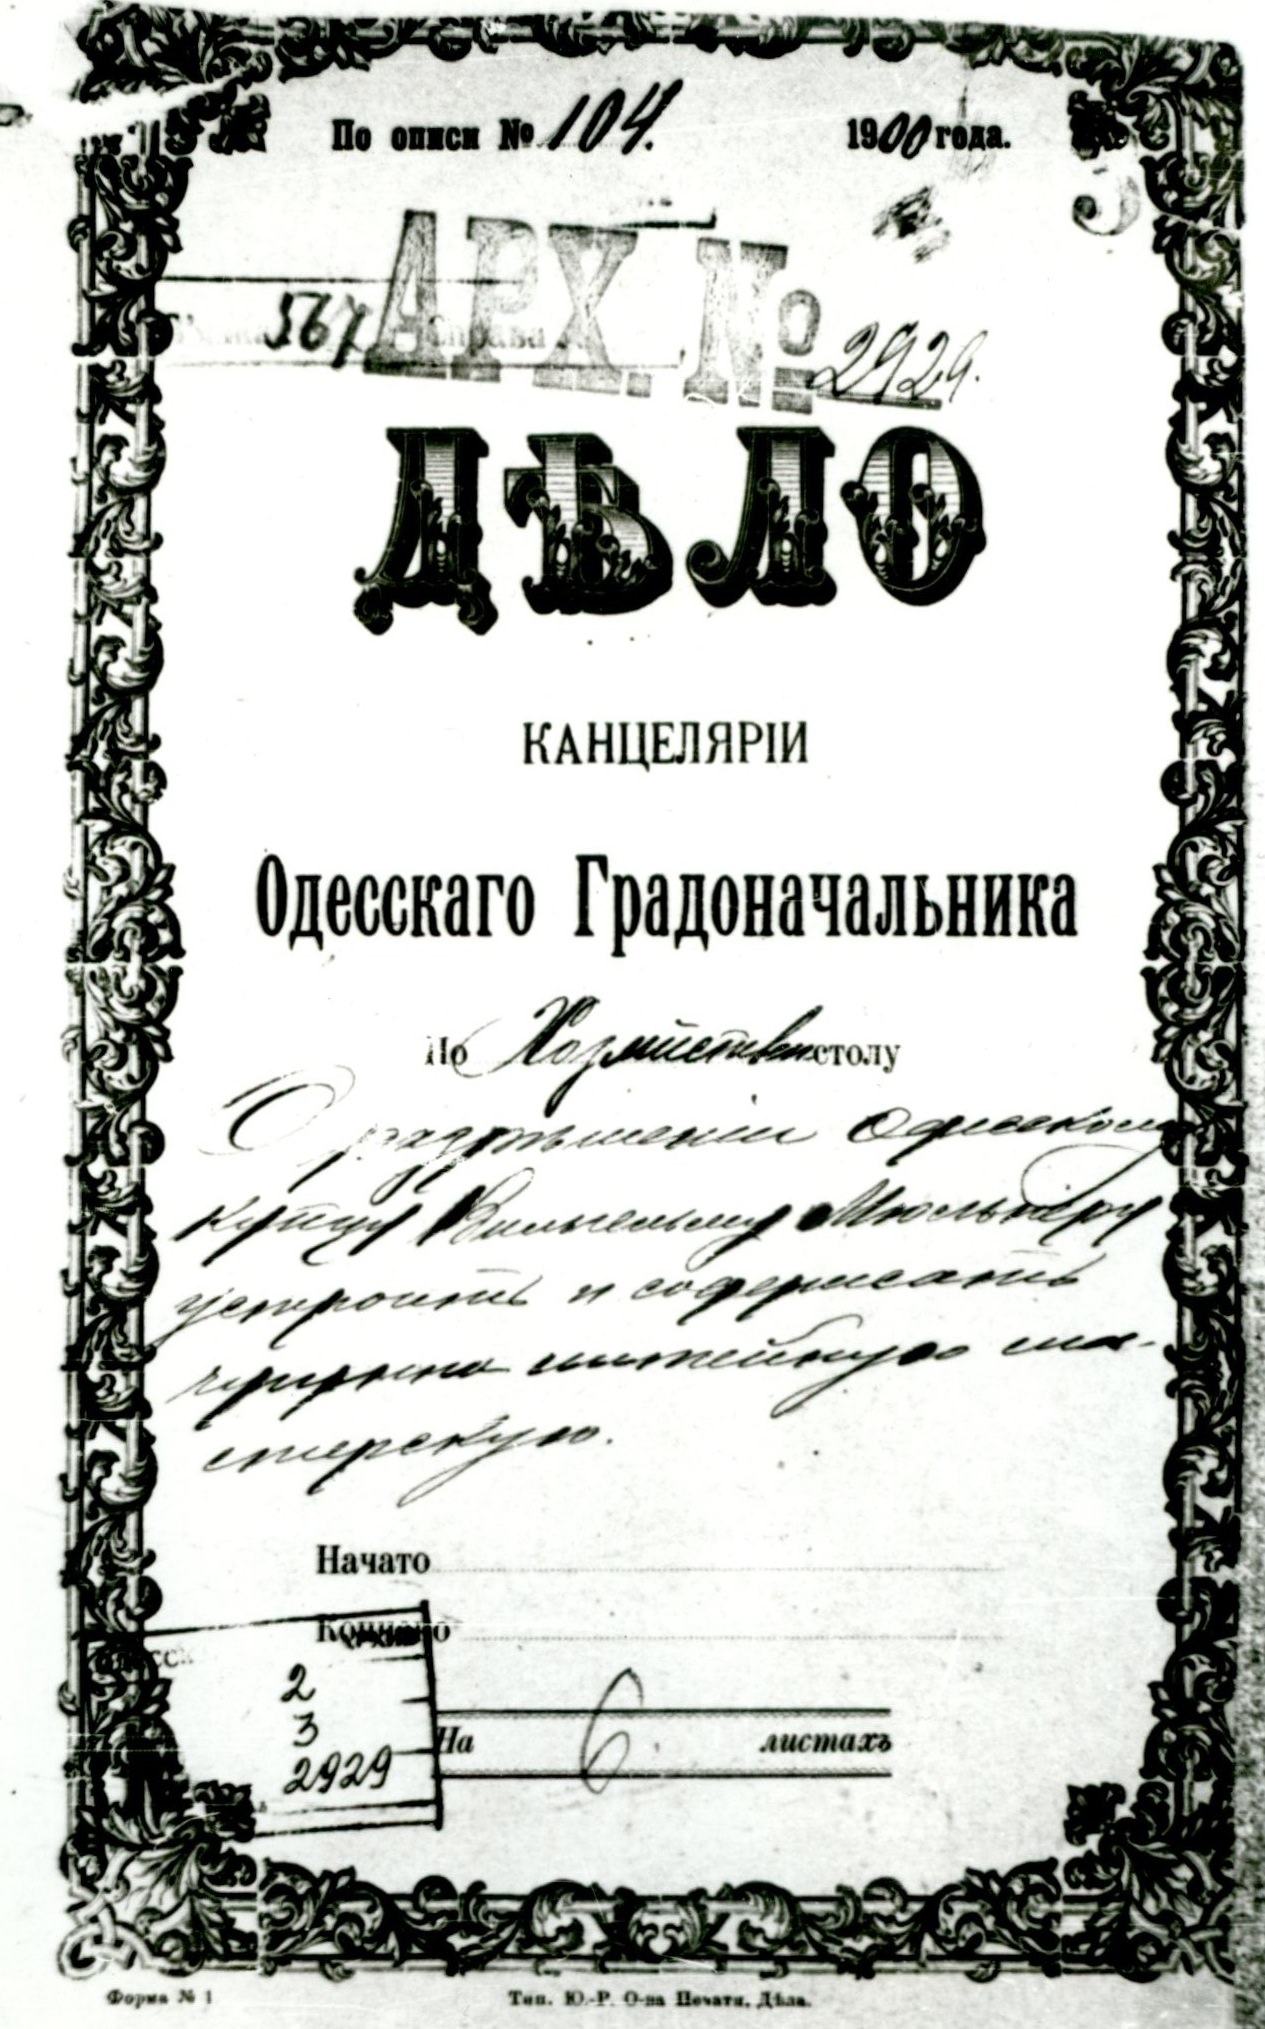 По описи № 104. 1900 года.
АРХ. № 2929.
567 Справа
ДѢЛО
КАНЦЕЛЯРІИ
Одесскаго Градоначальника
По Хозяйствен столу
О разрѣшеніи Одесскому
купцу Вильгельму Мюльнеру
устроить и содержать
чугунно литейную ма-
стерскую.
Начато
Кончено
2
3
2929
На 6. листахъ
Форма № 1 Тип. Ю.-Р. О-ва Печатн. Дѣла.